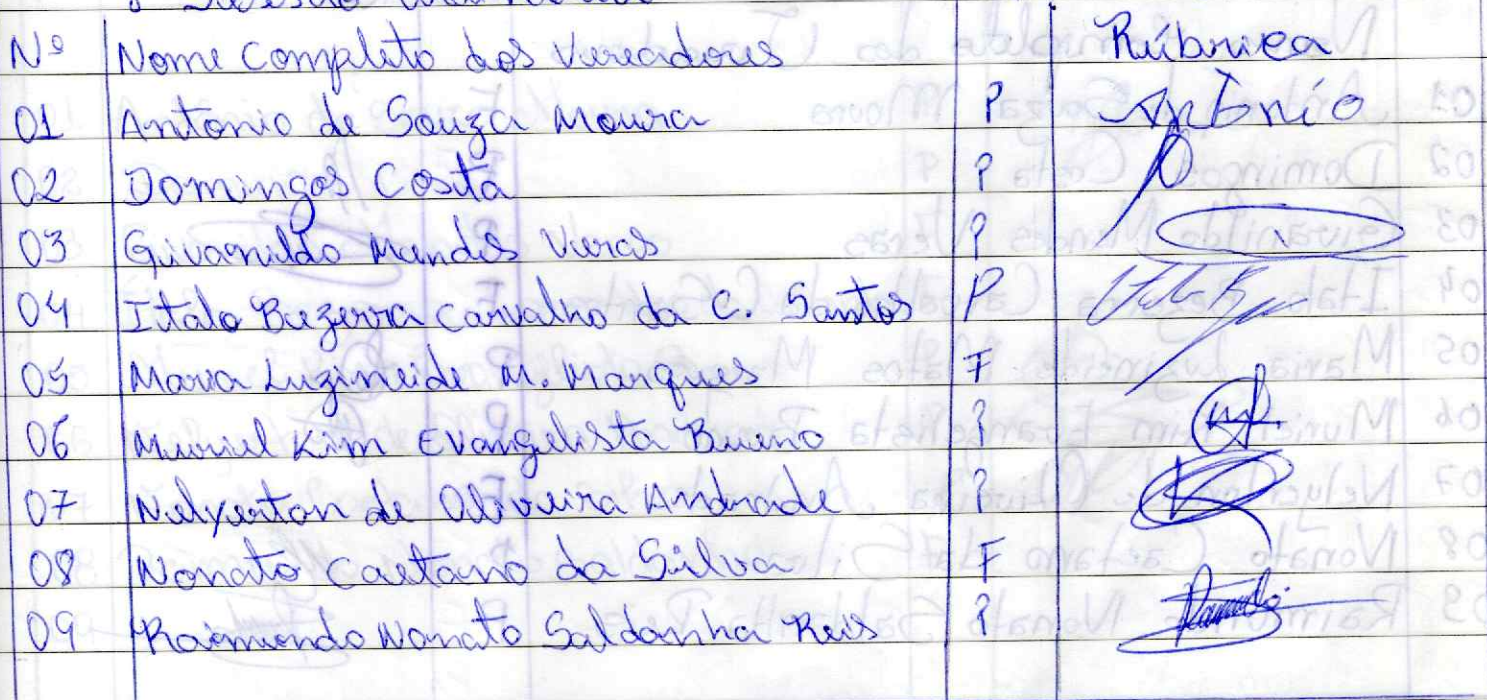 Nº Nome Completo dos Vereadores Rúbrica
01 Antonio de Souza Moura P Antônio
02 Domingos Costa P
03 Givanildo Mendes Veras P
04 Italo Bezerra Carvalho da C. Santos P
05 Maria Luzineide M. Marques F
06 Muriel Kim Evangelista Bueno P
07 Nelyerton de Oliveira Andrade P
08 Nonato Caetano da Silva F
09 Raimundo Nonato Saldanha Reis P